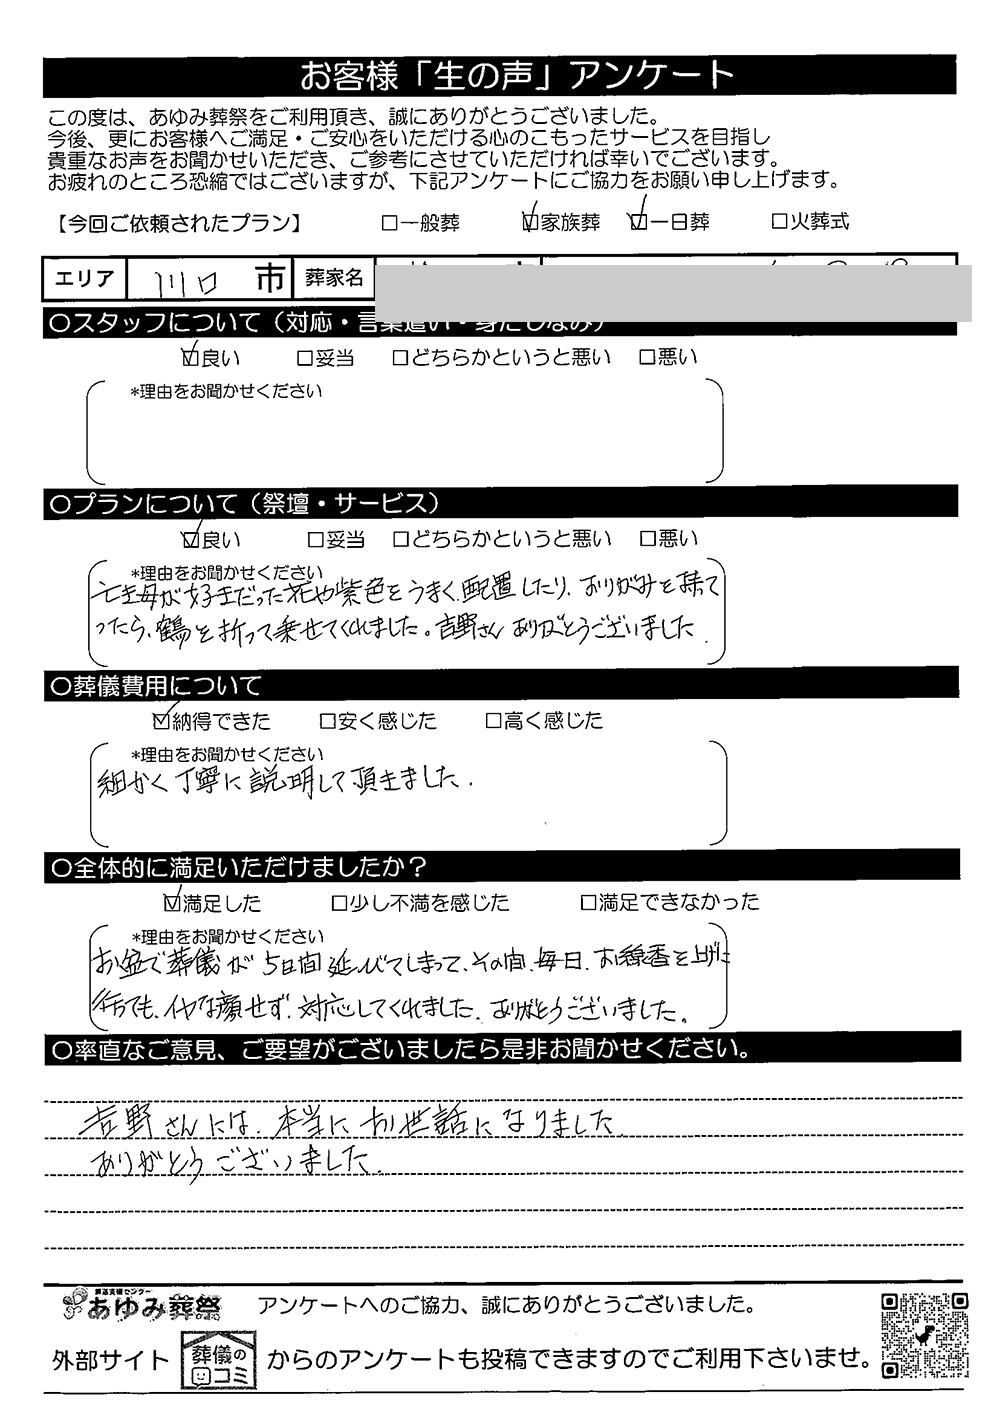 お客様「生の声」アンケート
この度は、あゆみ葬祭をご利用頂き、誠にありがとうございました。
今後、更にお客様へご満足・ご安心をいただける心のこもったサービスを目指し
貴重なお声をお聞かせいただき、ご参考にさせていただければ幸いでございます。
お疲れのところ恐縮ではございますが、下記アンケートにご協力をお願い申し上げます。
【今回ご依頼されたプラン】 □一般葬 ☑家族葬 ☑一日葬 □火葬式
エリア 川口 市 葬家名
○スタッフについて（対応・言葉遣い・身だしなみ）
☑良い □妥当 □どちらかというと悪い □悪い
*理由をお聞かせください
○プランについて（祭壇・サービス）
☑良い □妥当 □どちらかというと悪い □悪い
*理由をお聞かせください
亡き母が好きだった花や紫色をうまく配置したり、おりがみを持て
ったら、鶴を折って乗せてくれました。吉野さんありがとうございました
○葬儀費用について
☑納得できた □安く感じた □高く感じた
*理由をお聞かせください
細かく丁寧に説明して頂きました.
○全体的に満足いただけましたか？
☑満足した □少し不満を感じた □満足できなかった
*理由をお聞かせください
お盆で葬儀が5日間延びてしまって、その間、毎日、お線香を上げに
行っても、イヤな顔せず、対応してくれました。ありがとうございました。
○率直なご意見、ご要望がございましたら是非お聞かせください。
吉野さんには、本当にお世話になりました.
ありがとうございました.
葬送支援センター
あゆみ葬祭 アンケートへのご協力、誠にありがとうございました。
外部サイト 葬儀の口コミ からのアンケートも投稿できますのでご利用下さいませ。